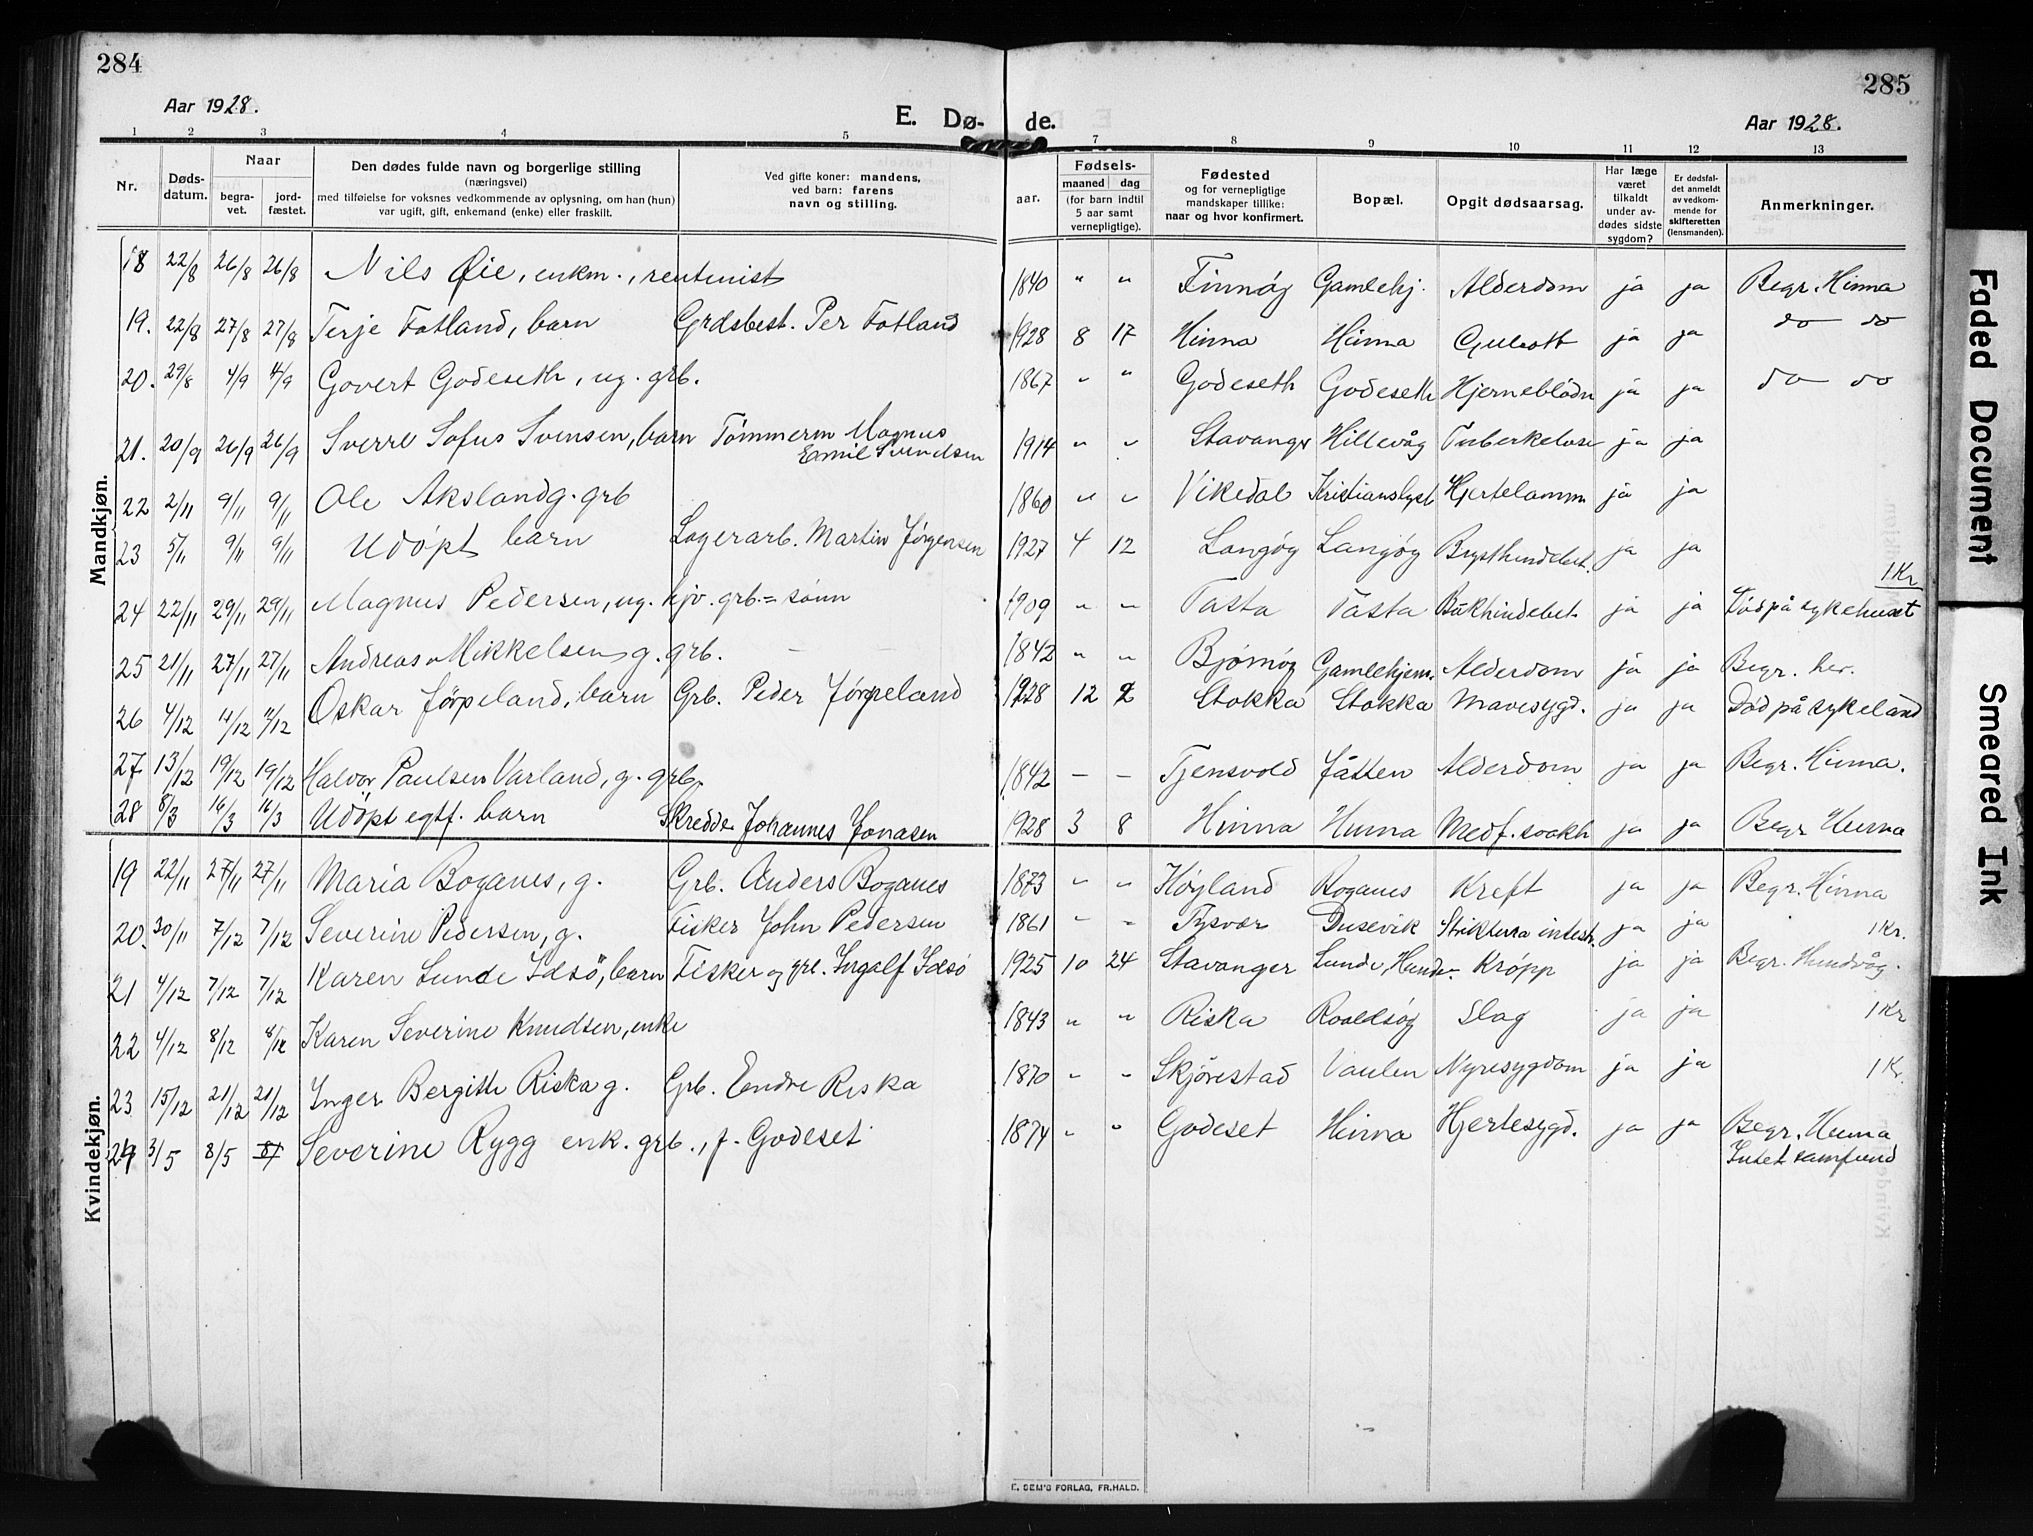 284
285
Aar 1928.
E. Dø-
de.
Aar 1928.
1 2 3 4 5 7 8 9 10 11 12 13
Nr.
Døds-
datum.
Naar
begra-
vet.
jord-
fæstet.
Den dødes fulde navn og borgerlige stilling
(næringsvei)
med tilføielse for voksnes vedkommende av oplysning, om han (hun)
var ugift, gift, enkemand (enke) eller fraskilt.
Ved gifte koner: mandens,
ved barn: farens
navn og stilling.
Fødsels-
aar.
maaned
dag
(for barn indtil
5 aar samt
vernepligtige).
Fødested
og for vernepligtige
mandskaper tillike:
naar og hvor konfirmert.
Bopæl.
Opgit dødsaarsag.
Har læge
været
tilkaldt
under av-
dødes sidste
sygdom?
Er dødsfal-
det anmeldt
av vedkom-
mende for
skifteretten
(lensmanden).
Anmerkninger.
Mandkjøn.
18 22/8 26/8 26/8 Nils Øie, enkm., rentenist 1840 " " Finnøy Gamlehj. Alderdom ja ja Begr. Hinna
19. 22/8 27/8 27/8 Terje Fotland, barn Grdsbest. Per Fotland 1928 8 17 Hinna Hinna Gulsott ja ja do do
20. 29/8 4/9 4/9 Govert Godeseth, ug. grb. 1867 " " Godeseth Godeseth Hjerneblödn ja ja do do
21. 20/9 26/9 26/9 Sverre Sofus Svensen, barn Tömmerm Magnus
Emil Svendsen 1914 " " Stavanger Hillevåg Tuberkelose ja ja
22 2/11 9/11 9/11 Ole Aksland g. grb 1860 " " Vikedal Kristianslyst Hjertelamm ja ja
23 5/11 9/11 9/11 Udöpt barn Lagerarb. Martin Jørgensen 1927 4 12 Langøy Langøy Brysthindebet. ja ja
1 Kr
24 22/11 29/11 29/11 Magnus Pedersen, ug. hjv. grb. = sønn 1909 " " Tasta Tasta Bukhindebet ja ja Död på sykehuset
25 21/11 27/11 27/11 Andreas Mikkelsen g. grb. 1842 " " Bjørnøy Gamlehjem. Alderdom ja ja Begr. her.
26 4/12 11/12 11/12 Oskar Jørpeland, barn Grb. Peder Jørpeland 1928 12 2 Stokka Stokka Mavesygd. ja ja Död på sykeland
27 13/12 19/12 19/12 Halvor Paulsen Varland, g. grb. 1842 - - Tjensvold Jåtten Alderdom ja ja Begr. Hinna.
28 8/3 16/3 16/3 Udöpt egtf. barn Skredder Johannes Jonasen 1928 3 8 Hinna Hinna Medf. svakh ja ja Begr Hinna
Kvindekjøn.
19 22/11 27/11 27/11 Maria Boganes, g. Grb. Anders Boganes 1873 " " Høyland Boganes Kreft ja ja Begr. Hinna
20. 30/11 7/12 7/12 Severine Pedersen, g. Fisker John Pedersen 1861 - - Tysvær Dusevik Striktura intest. ja ja 1 Kr.
21 4/12 7/12 7/12 Karen Lunde Idsö, barn Fisker og grb. Ingalf Idsö 1925 10 24 Stavanger Lunde, Hundv. Kröpp ja ja Begr. Hundvåg.
22 4/12 8/12 8/12 Karen Severine Knudsen, enke 1843 " " Riska Roaldsøy Slag ja ja 1 Kr
23 15/12 21/12 21/12 Inger Bergith Riska g. Grb. Endre Riska 1870 " " Skjørestad Vaulen Nyresygdom ja ja 1 Kr.
24 3/5 8/5 Severine Rygg enk. grb., f. Godeset 1874 " " Godeset Hinna Hjertesygd. ja ja Begr. Hinna
Intet samfund
E. SEM'S FORLAG, FR.HALD.
Faded Document
Smeared Ink